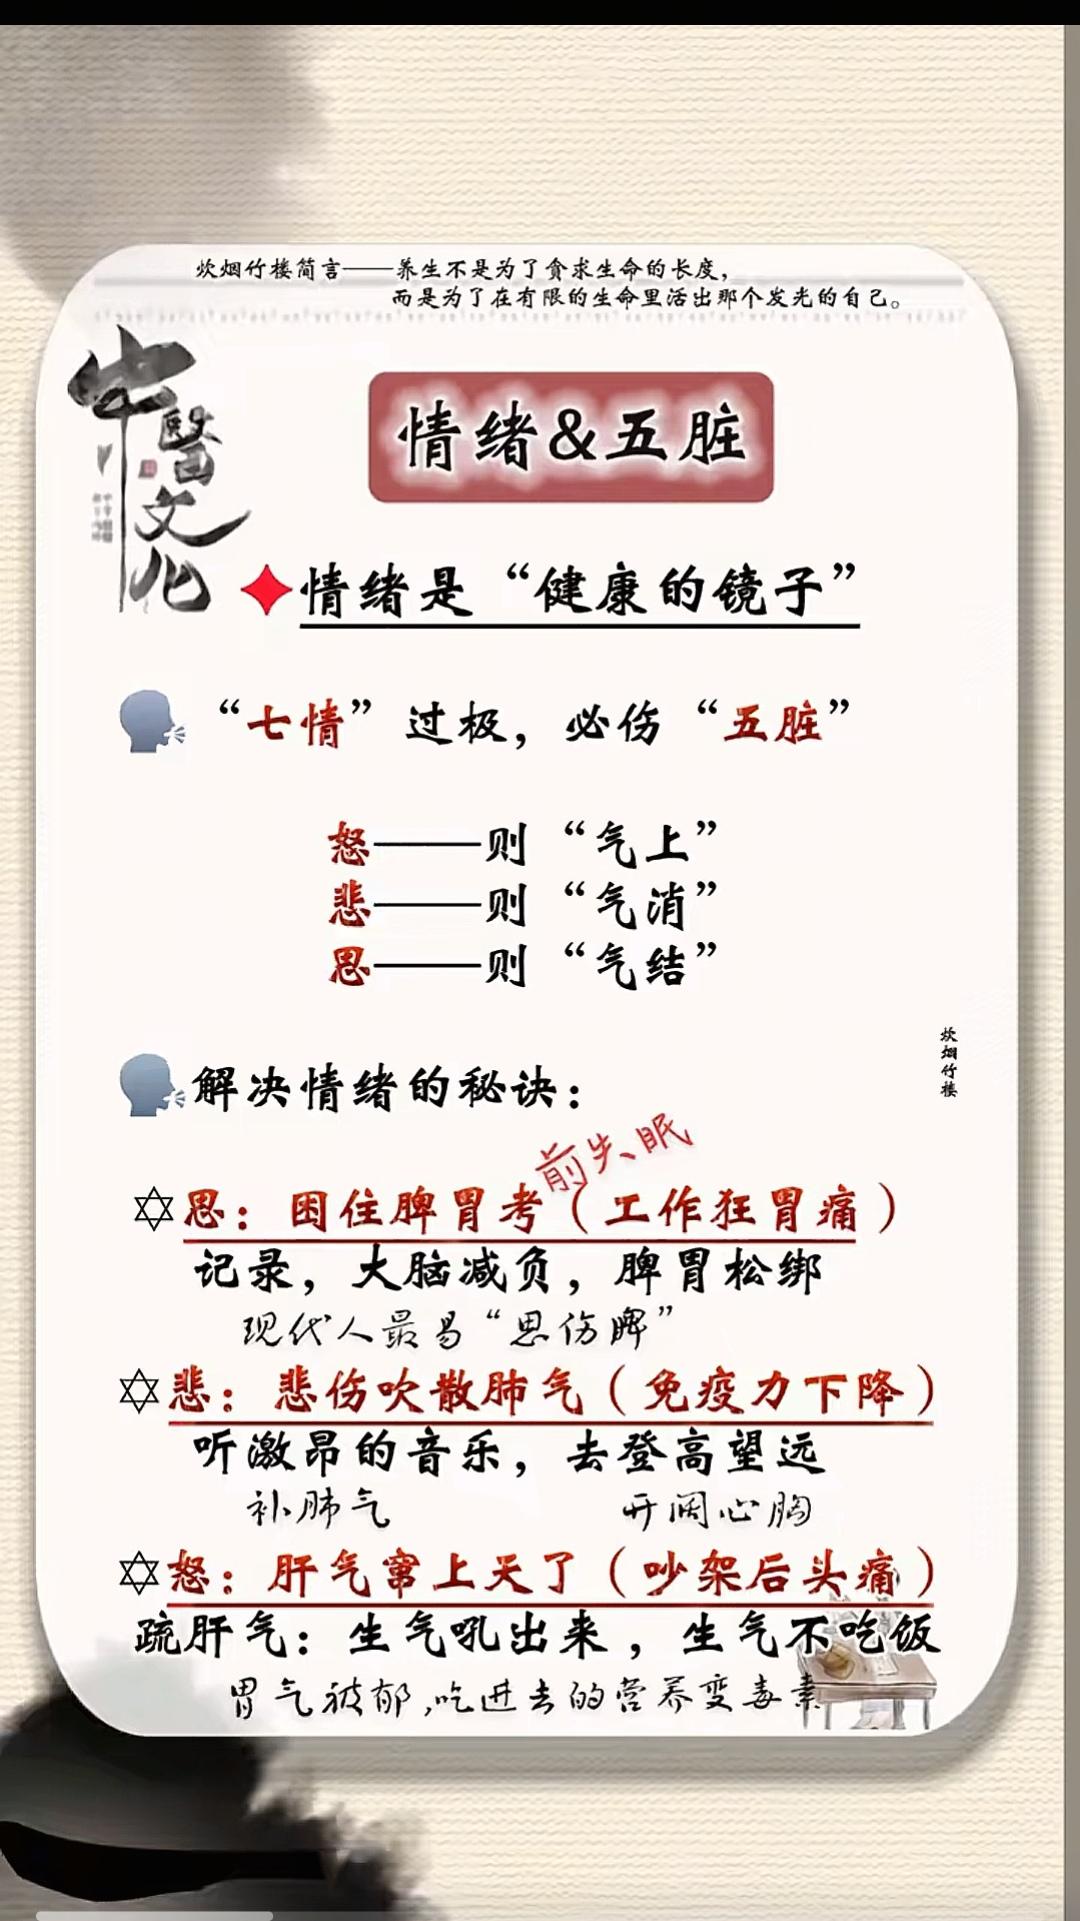 炊烟竹楼简言——养生不是为了贪求生命的长度，
而是为了在有限的生命里活出那个发光的自己。
中醫文化
情绪&五脏
情绪是“健康的镜子”
“七情”过极，必伤“五脏”
怒——则“气上”
悲——则“气消”
思——则“气结”
炊烟竹楼
解决情绪的秘诀：
前失眠
思：困住脾胃考（工作狂胃痛）
记录，大脑减负，脾胃松绑
现代人最易“思伤脾”
悲：悲伤吹散肺气（免疫力下降）
听激昂的音乐，去登高望远
补肺气 开阔心胸
怒：肝气窜上天了（吵架后头痛）
疏肝气：生气吼出来，生气不吃饭
胃气被郁，吃进去的营养变毒素